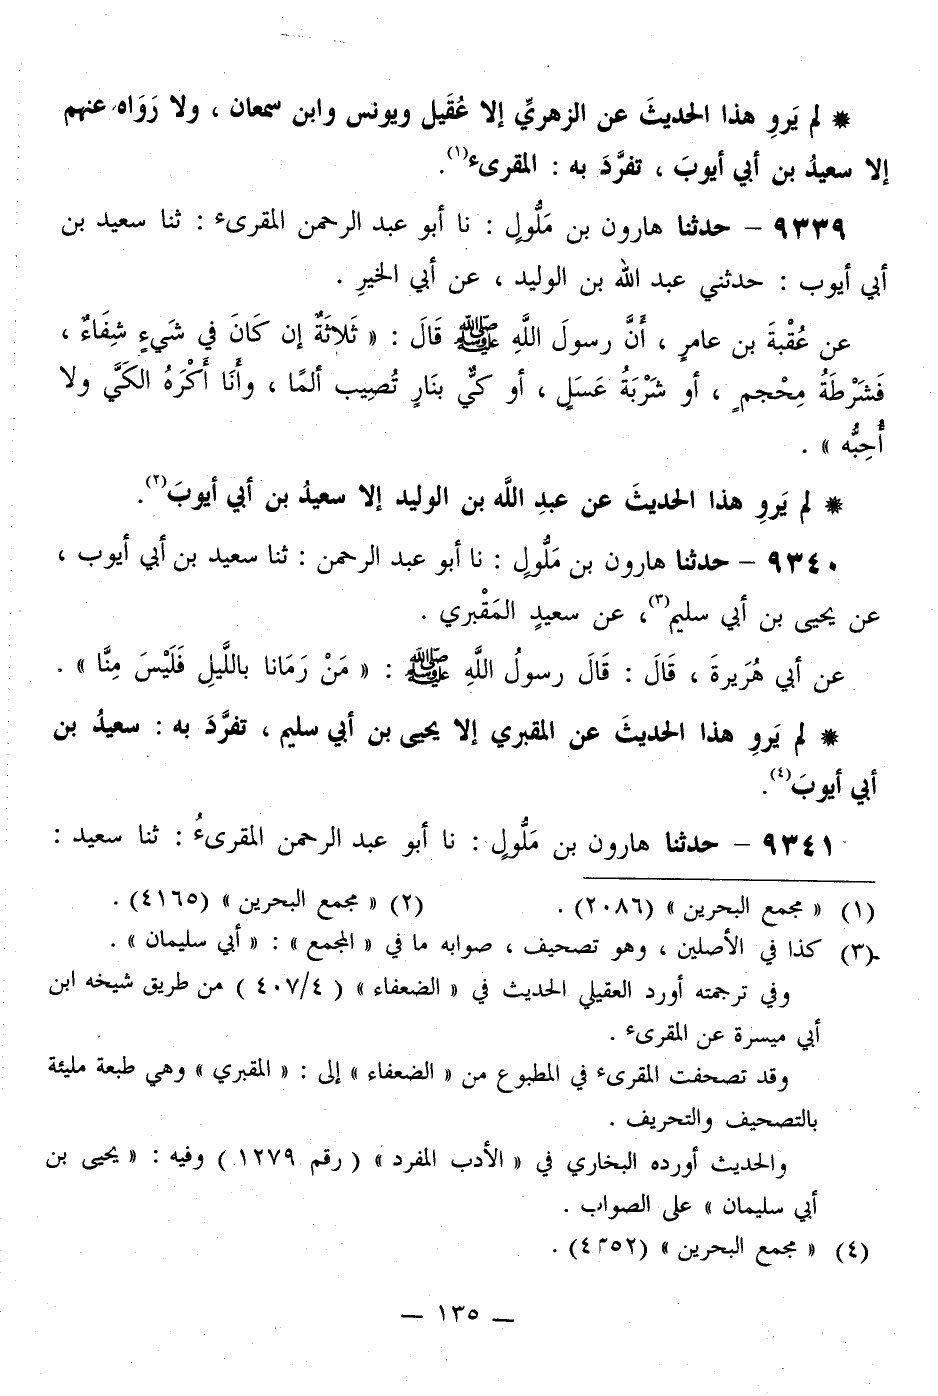 * لم يَروِ هذا الحديثَ عن الزهريِّ إلا عُقَيل ويونس وابن سمعان ، ولا رَوَاه عنهم
إلا سعيدُ بن أبي أيوبَ ، تفرَّدَ به : المقرىء(١).
٩٣٣٩ – حدثنا هارون بن مَلُّولٍ : نا أبو عبد الرحمن المقرىء : ثنا سعيد بن
أبي أيوب : حدثني عبد الله بن الوليد ، عن أبي الخيرِ .
عن عُقْبةَ بن عامرٍ ، أَنَّ رسولَ اللَّهِ ﷺ قَالَ : « ثَلاثَةٌ إن كَانَ في شَيءٍ شِفَاءٌ ،
فَشَرْطَةُ مِحْجمٍ ، أو شَرْبَةُ عَسَلٍ ، أو كيٌّ بنَارٍ تُصِيب ألمًا ، وأَنَا أَكْرَهُ الكَيَّ ولا
أُحِبُّه » .
* لم يَروِ هذا الحديثَ عن عبدِ اللَّه بن الوليد إلا سعيدُ بن أبي أيوبَ(٢).
٩٣٤٠ – حدثنا هارون بن مَلُّولٍ : نا أبو عبد الرحمن : ثنا سعيد بن أبي أيوب ،
عن يحيى بن أبي سليم(٣)، عن سعيدٍ المَقْبري .
عن أبي هُرَيرةَ ، قَالَ : قَالَ رسولُ اللَّهِ ﷺ : « مَنْ رَمَانا باللَّيلِ فَلَيْسَ مِنَّا » .
* لم يَروِ هذا الحديثَ عن المقبري إلا يحيى بن أبي سليم ، تفرَّدَ به : سعيدُ بن
أبي أيوبَ(٤).
٩٣٤١ – حدثنا هارون بن مَلُّولٍ : نا أبو عبد الرحمن المقرىءُ : ثنا سعيد :
(١) « مجمع البحرين » (٢٠٨٦) . (٢) « مجمع البحرين » (٤١٦٥) .
(٣) كذا في الأصلين ، وهو تصحيف ، صوابه ما في « المجمع » : « أبي سليمان » .
وفي ترجمته أورد العقيلي الحديث في « الضعفاء » ( ٤٠٧/٤ ) من طريق شيخه ابن
أبي ميسرة عن المقرىء .
وقد تصحفت المقرىء في المطبوع من « الضعفاء » إلى : « المقبري » وهي طبعة مليئة
بالتصحيف والتحريف .
والحديث أورده البخاري في « الأدب المفرد » ( رقم ١٢٧٩ ) وفيه : « يحيى بن
أبي سليمان » على الصواب .
(٤) « مجمع البحرين » (٤٣٥٢) .
— ١٣٥ —